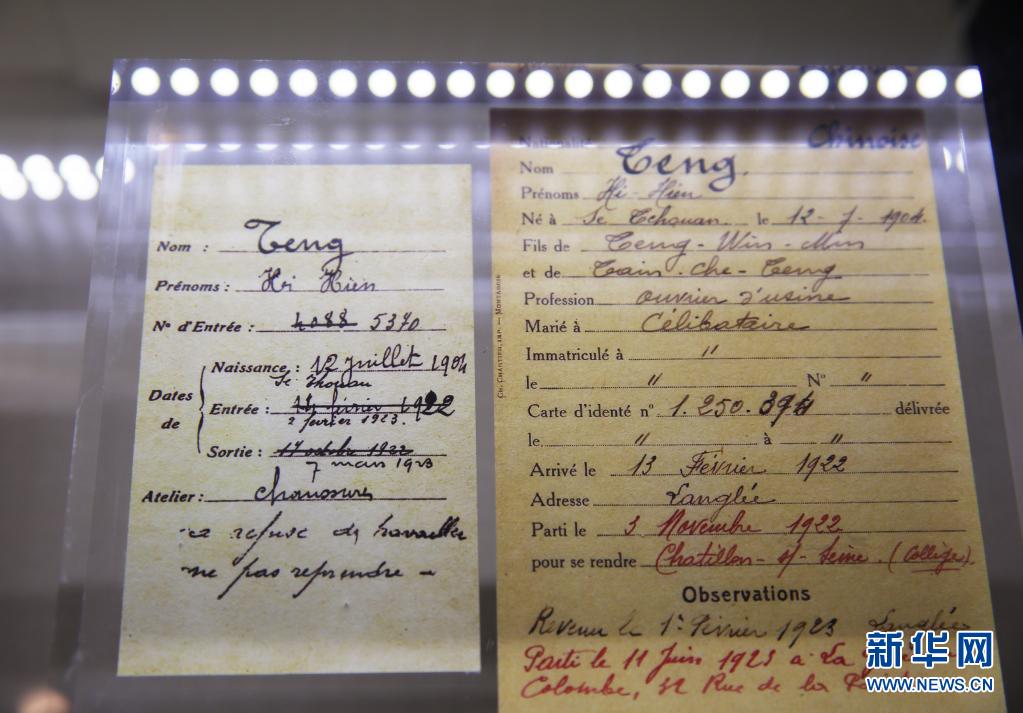 Nom : Teng
Prénoms : Hi Hien
N° d'Entrée : 4088 5370
Dates de
Naissance : 12 Juillet 1904
Se Tchouan
Entrée : 14 février 1922
2 fevrier 1923.
Sortie : 17 octobre 1922
7 mars 1923
Atelier : chaussures
a refusé de travailler
ne pas reprendre -
Nationalité Chinoise
Nom Teng.
Prénoms Hi-Hien
Né à Se Tchouan le 12-7-1904.
Fils de Teng-Win-Min
et de Tain-Che-Teng
Profession ouvrier d'usine
Marié à Célibataire
Immatriculé à "
le " N° "
Carte d'identé n° 1.250.394 délivrée
le " à "
Arrivé le 13 Février 1922
Adresse Langlée
Parti le 3 Novembre 1922
pour se rendre Chatillon-s/-Seine. (Collège).
Observations
Revenu le 1er Février 1923 Langlée
Parti le 11 Juin 1923 a La
Colombe, 39 Rue de la
CH. CHANTIER, IMP. — MONTARGIS
新华网
WWW.NEWS.CN